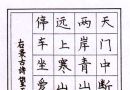 天门中断
两岸青山
远上寒山
停车坐爱
右录古诗